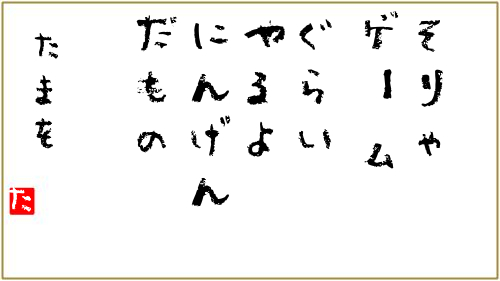 そりゃ
ゲーム
ぐらい
やるよ
にんげん
だもの
たまを
た